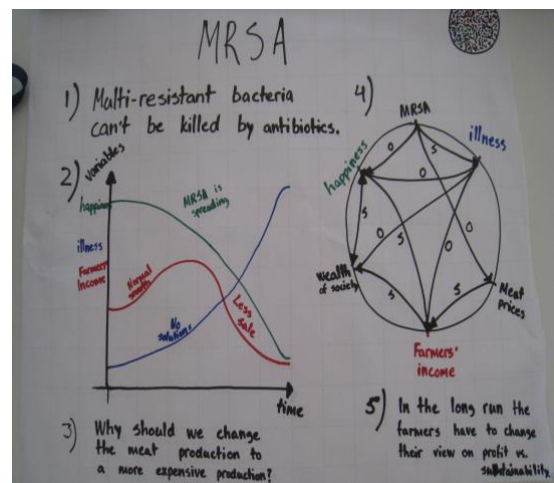 MRSA
1) Multi-resistant bacteria
can't be killed by antibiotics.
2) variables
happiness
MRSA is
spreading
illness
Farmers'
income
Normal
growth
No
solutions
Less
sale
time
3) Why should we change
the meat production to
a more expensive production?
4)
MRSA
illness
happiness
O
S
O
S
O
S
O
O
Wealth
of society
S
S
Meat
prices
Farmers'
income
5) In the long run the
farmers have to change
their view on profit vs.
sustainability.